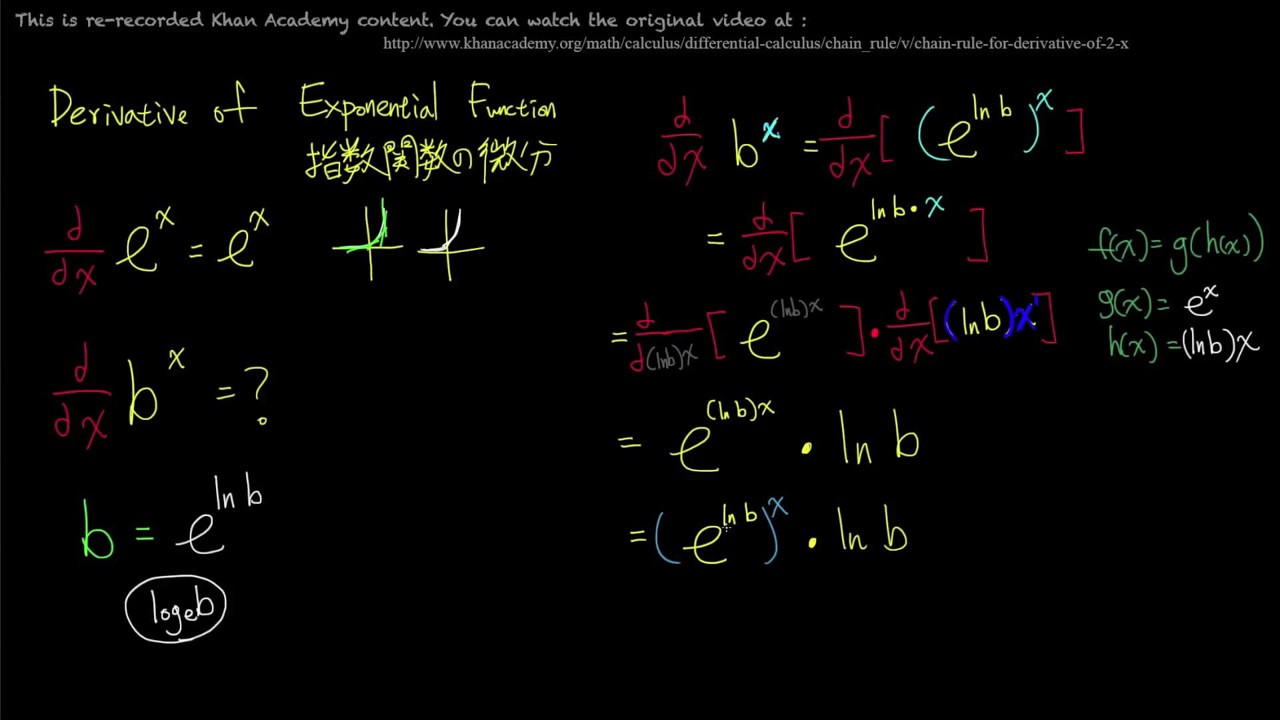 This is re-recorded Khan Academy content. You can watch the original video at :
http://www.khanacademy.org/math/calculus/differential-calculus/chain_rule/v/chain-rule-for-derivative-of-2-x
Derivative of Exponential Function
指数関数の微分
d/dx e^x = e^x
d/dx b^x = ?
b = e^(ln b)
logeb
d/dx b^x = d/dx [ (e^(ln b))^x ]
= d/dx [ e^(ln b · x) ]
= d/d(ln b)x [ e^((ln b)x) ] · d/dx [(ln b)x']
= e^((ln b)x) · ln b
= (e^(ln b))^x · ln b
f(x) = g(h(x))
g(x) = e^x
h(x) = (ln b)x